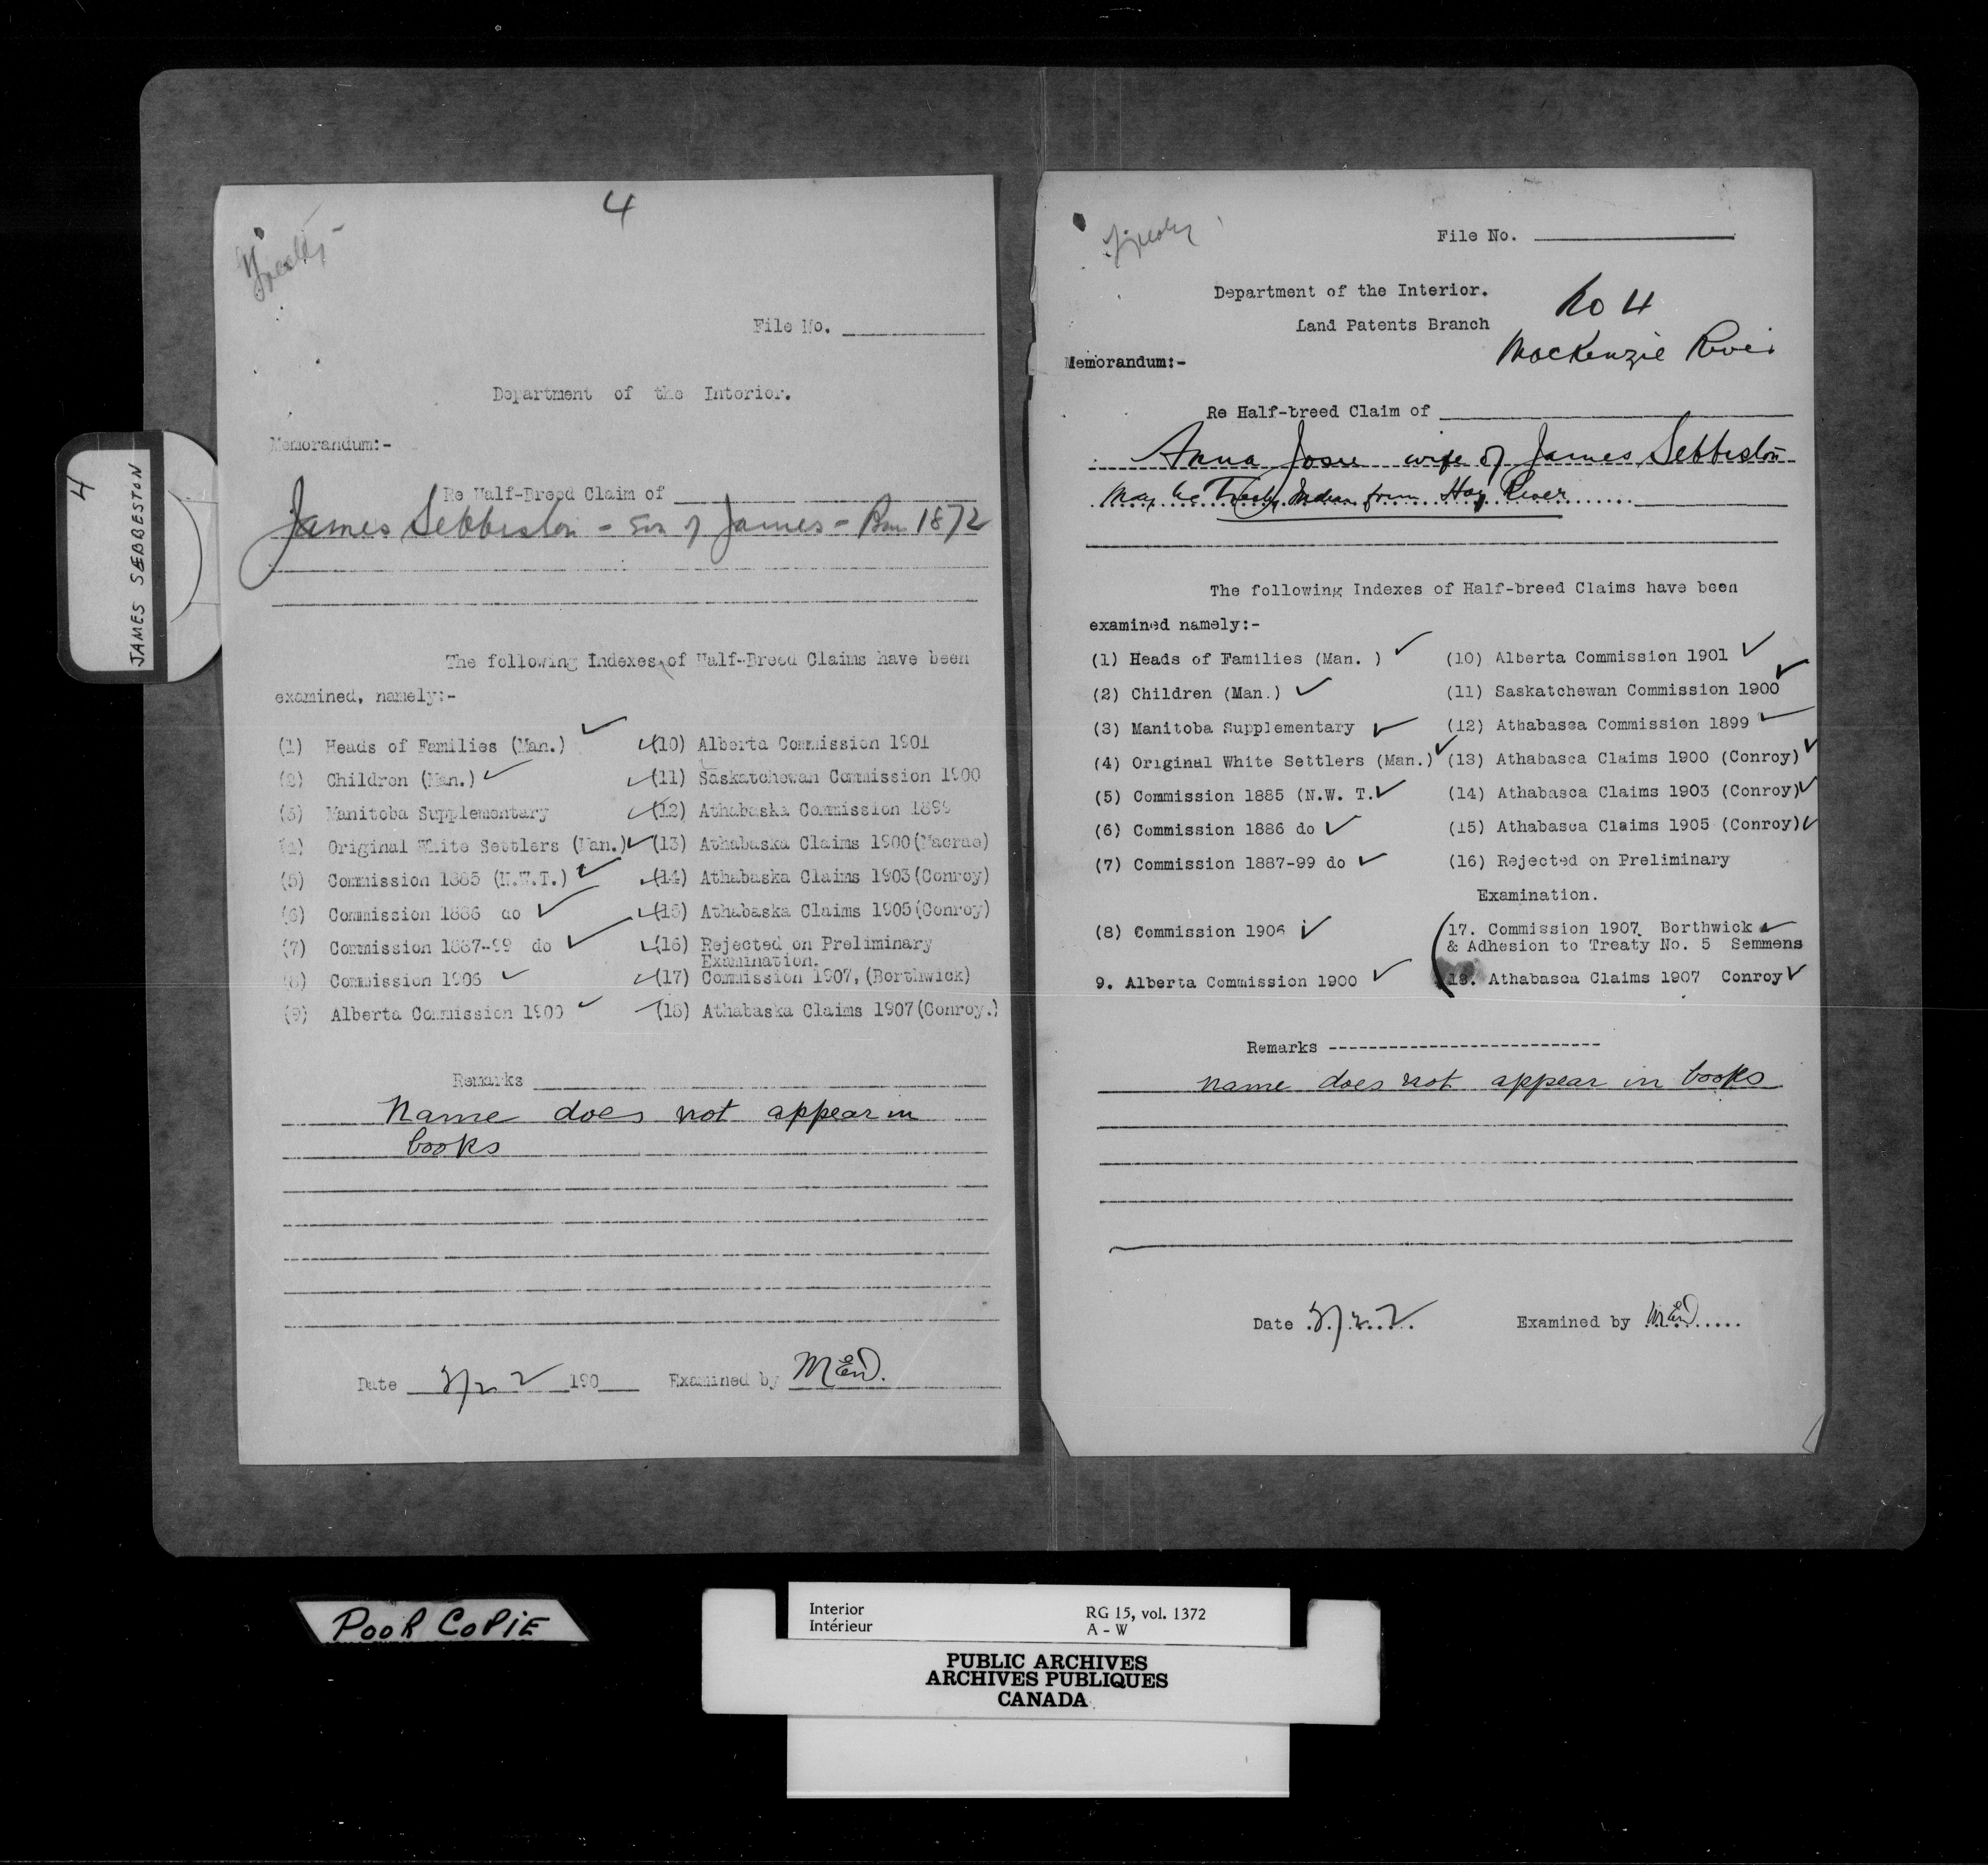 4
JAMES SEBBESTON
4
Treaty
File No.
Department of the Interior.
Memorandum:-
Re Half-Breed Claim of
James Sebbeston - Son of James - Born 1872
The following Indexes of Half-Breed Claims have been
examined, namely:-
(1) Heads of Families (Man.) ✓
(2) Children (Man.) ✓
(3) Manitoba Supplementary
(4) Original White Settlers (Man.) ✓
(5) Commission 1885 (N.W.T.) ✓
(6) Commission 1886 do ✓
(7) Commission 1887-99 do ✓
(8) Commission 1906 ✓
(9) Alberta Commission 1900 ✓
✓(10) Alberta Commission 1901
✓(11) Saskatchewan Commission 1900
✓(12) Athabaska Commission 1899
(13) Athabaska Claims 1900(Macrae)
✓(14) Athabaska Claims 1903(Conroy)
✓(15) Athabaska Claims 1905(Conroy)
✓(16) Rejected on Preliminary
Examination.
✓(17) Commission 1907,(Borthwick)
✓(18) Athabaska Claims 1907(Conroy.)
Remarks
Name does not appear in
books
Date 190 Examined by
Treaty
File No.
Department of the Interior.
Land Patents Branch
No 4
MacKenzie River
Memorandum:-
Re Half-breed Claim of
Anna Josie wife of James Sebbeston
May be Treaty Indian from Hay River
The following Indexes of Half-breed Claims have been
examined namely:-
(1) Heads of Families (Man. ) ✓
(2) Children (Man.) ✓
(3) Manitoba Supplementary ✓
(4) Original White Settlers (Man.) ✓
(5) Commission 1885 (N.W. T. ✓
(6) Commission 1886 do ✓
(7) Commission 1887-99 do ✓
(8) Commission 1906 ✓
9. Alberta Commission 1900 ✓
(10) Alberta Commission 1901 ✓
(11) Saskatchewan Commission 1900 ✓
(12) Athabasca Commission 1899 ✓
(13) Athabasca Claims 1900 (Conroy) ✓
(14) Athabasca Claims 1903 (Conroy) ✓
(15) Athabasca Claims 1905 (Conroy) ✓
(16) Rejected on Preliminary
Examination.
17. Commission 1907 Borthwick ✓
& Adhesion to Treaty No. 5 Semmens
18. Athabasca Claims 1907 Conroy ✓
Remarks
name does not appear in books
Date Examined by
POOR COPIE
Interior
Intérieur
RG 15, vol. 1372
A - W
PUBLIC ARCHIVES
ARCHIVES PUBLIQUES
CANADA